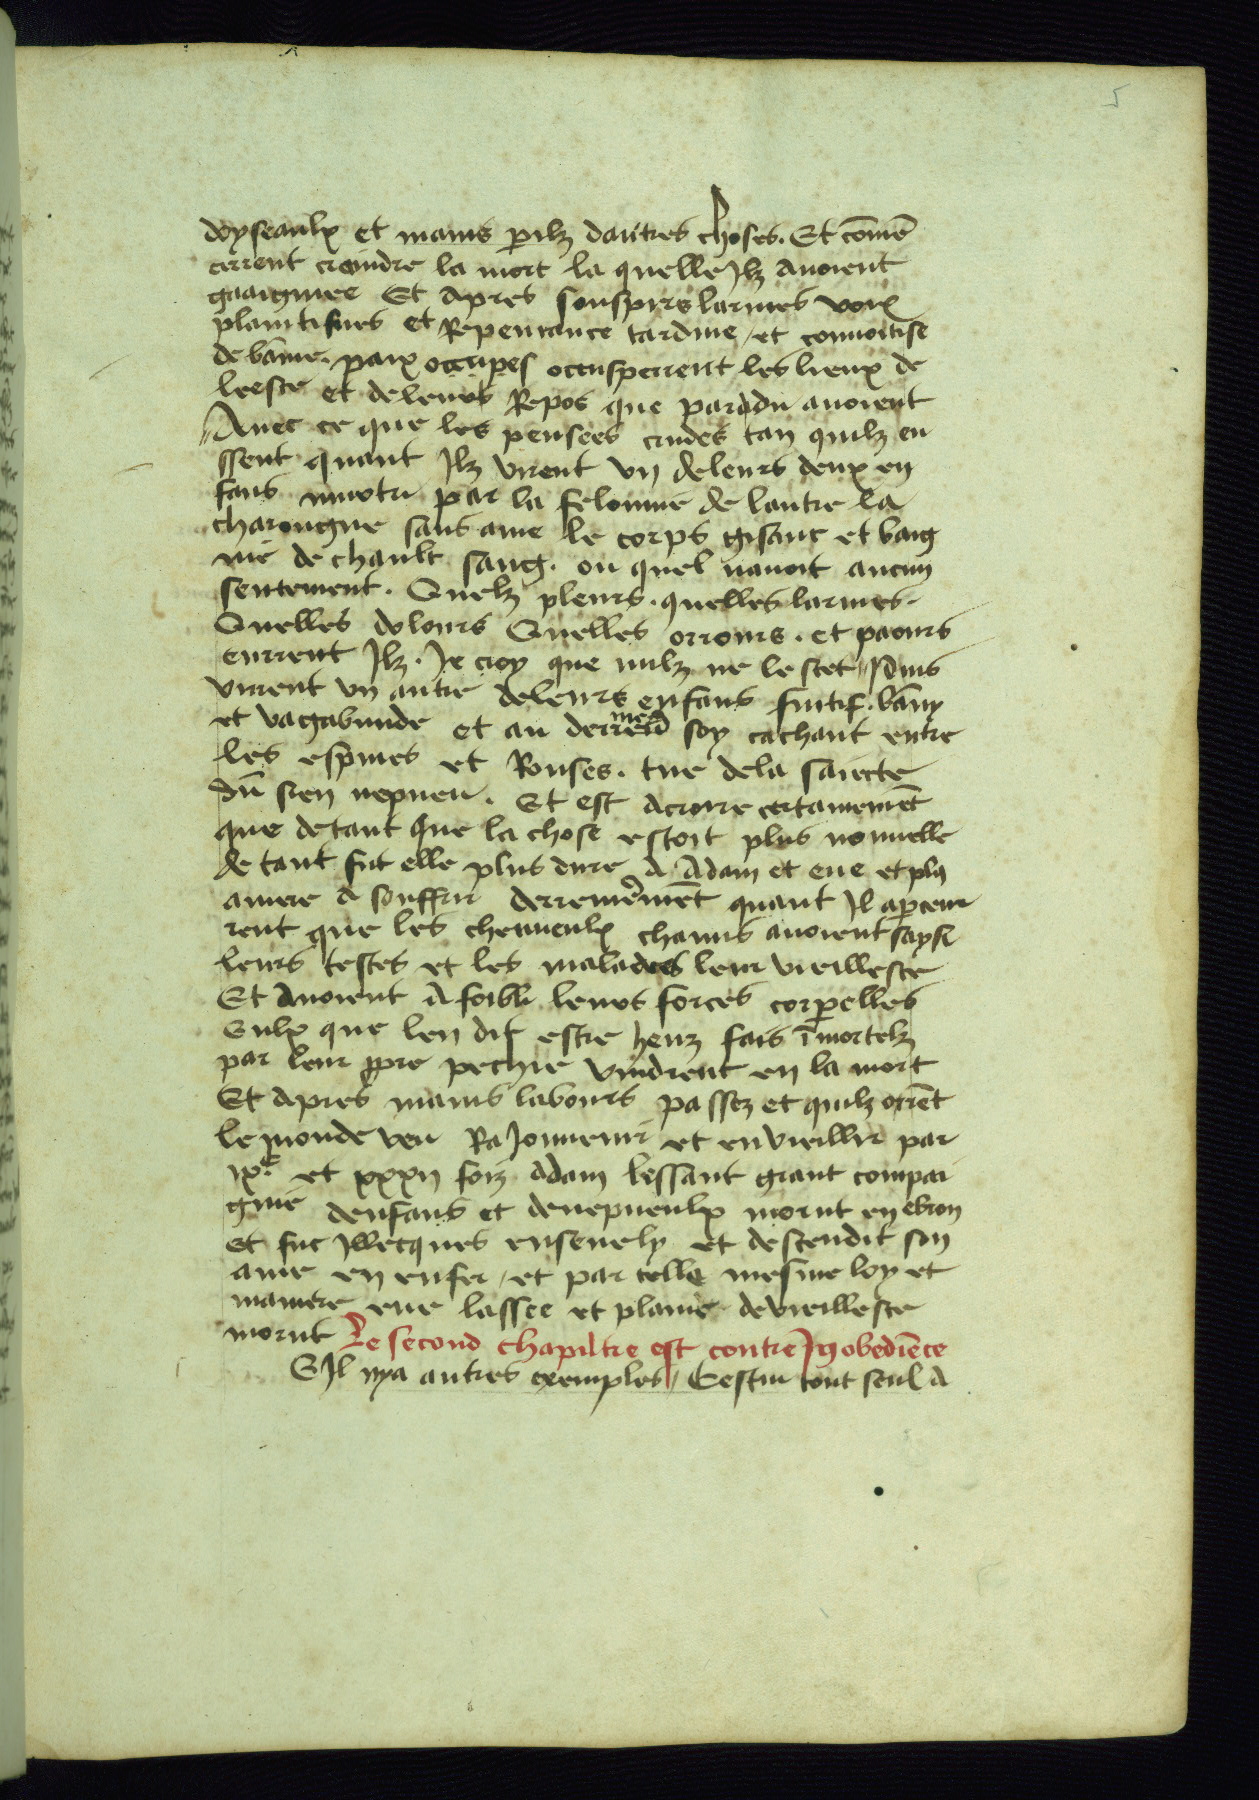 5
doyseaulx et mains perilz dautres choses. Et com̄ē
cerrent craindre la mort la quelle Ilz auoient
gaaignee Et apres souspirs larmes voix
plaintifues et Repentance tardiue / et conuoitise
de vaine paix occupes occusperrent les lieux de
leesce et deleurs Repos que paradu auoient
Auec ce que les pensees crudes tan quilz eu
ssent quant Ilz virent vn deleurs deux en
fans murtri par la felonnie de lautre la
charongne sans ame le corps gisant et baig
nie de chault sang. ou quel nauoit aucun
sentement. Quelz pleurs. quelles larmes.
Quelles dolours Quelles orrours. et paours
eurrent Ilz. Je croy que nulz ne le scet / Puis
virent vn autre deleurs enfans fuitif. bāny
et vagabunde et au derreniē soy cachant entre
les espines et Ronses. tue dela saiecte
dū sien nepueu. Et est acroire certainemēt
que detant que la chose estoit plus nouuelle
de tant fut elle plus dure A Adam et eue et plꝯ
amere A souffrir derrenieremēt quant Il aperceu
rent que les cheuueulx chanus auoient saysi
leurs testes et les malades leur vieillesce
Et Auoient Afoibli leurs forces corporelles
Eulx que len dit estre heuz fais īmortelz
par leur propre pechie vindrent en la mort
Et apres mains labours passez et quilz orrēt
le monde veu Rajouuenir et envieillir par
ixᶜ et xxxii foiz Adam lessant grant compai
gnie denfans et denepueulx morut en ebron
et fut Illecques enseuely et descendit son
ame en enfer / et par celle mesme loy et
maniere eue lassee et plaine devieillesce
morut Le second chapiltre est contre Inobediēce
Sil nya autres exemples / Cestui tout seul A